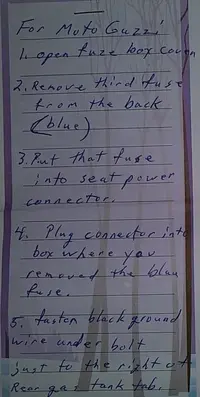 For Moto Guzzi
1. open fuze box cover
2. Remove third fuse
from the back
(blue)
3. Put that fuse
into seat power
connector.
4. Plug connector into
box where you
removed the blau
fuse.
5. fasten black ground
wire under bolt
just to the right of
Rear gas tank tab.